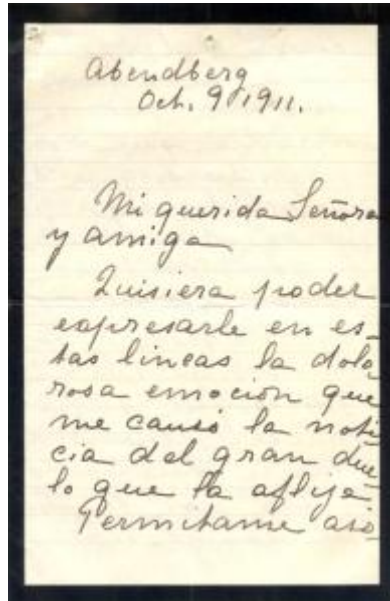 Abendberg
Oct. 9, 1911.
Mi querida Señora
y amiga
Quisiera poder
expresarle en es-
tas lineas la dolo-
rosa emoción que
me causó la noti-
cia del gran due-
lo que la aflije.
Permitame aso-